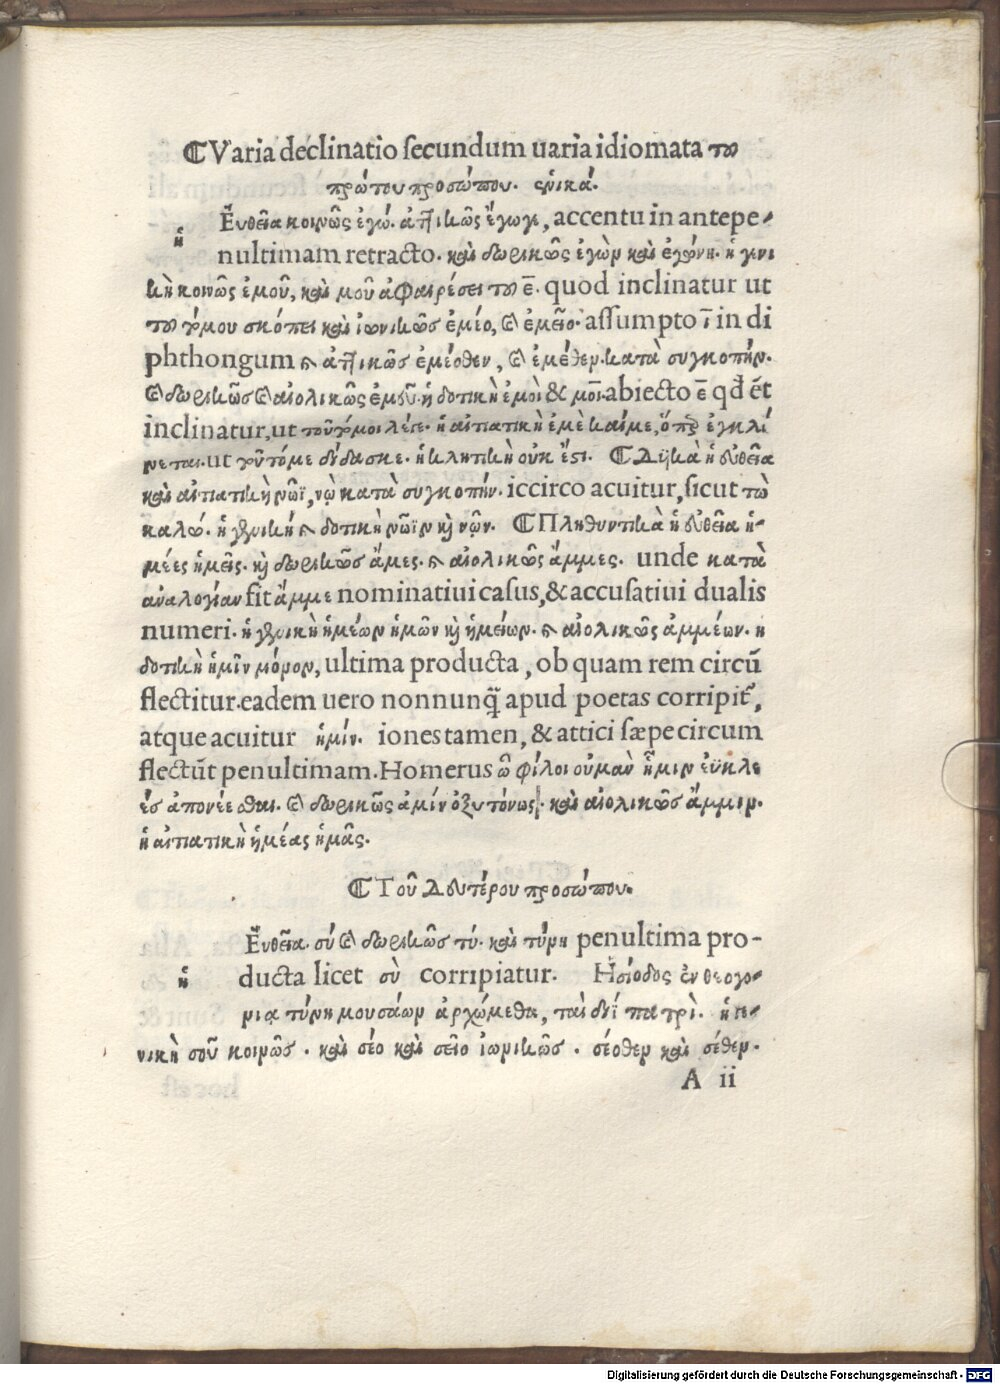 ☾Varia declinatio ſecundum uaria idiomata τοῦ
πρώτου προσώπου. ἑνικά.
Ἐυθεῖα κοινῶς ἐγώ. ἀττικῶς ἔγωγε, accentu in antepe-
ἡ
nultimam retracto. καὶ δωρικῶς ἐγὼν καὶ ἐγώνη. ἡ γενι
κὴ κοινῶς ἐμοῦ, καὶ μοῦ ἀφαιρέσει τοῦ ε̄. quod inclinatur ut
σκόπει καὶ ἰωνικῶς ἐμέο, καὶ ἐμεῖο. aſſumpto ῑ in di
phthongum καὶ ἀττικῶς ἐμέοθεν, καὶ ἐμέθεν. κατὰ συγκοπήν.
καὶ δωρικῶς καὶ αἰολικῶς ἐμεῦ. ἡ δοτικὴ ἐμοὶ & μοι. abiecto ε̄ qđ et̄
inclinatur, ut λέγε. ἡ αἰτιατικὴ ἐμὲ καὶ με, ὅπερ ἐγκλί
νεται. ut δίδασκε. ἡ κλητικὴ οὐκ ἔστι. ☾Δυϊκὰ ἡ εὐθεῖα
καὶ αἰτιατικὴ νῶϊ, νὼ κατὰ συγκοπήν. iccirco acuitur, ſicut τὼ
καλώ. ἡ γενικὴ καὶ δοτικὴ νῶϊν καὶ νῷν. ☾Πληθυντικὰ ἡ εὐθεῖα ἡ-
μέες ἡμεῖς. καὶ δωρικῶς ἄμες. καὶ αἰολικῶς ἄμμες. unde κατὰ
αναλογίαν fit ἄμμε nominatiui caſus, & accuſatiui dualis
numeri. ἡ γενικὴ ἡμέων ἡμῶν καὶ ἡμείων. καὶ αἰολικῶς ἀμμέων. ἡ
δοτικὴ ἡμῖν μόνον, ultima producta, ob quam rem circū
flectitur. eadem uero nonnunq̄ apud poetas corripit̄,
atque acuitur ἡμίν. iones tamen, & attici ſæpe circum
flectūt penultimam. Homerus ὦ φίλοι οὐμὰν ἧμιν ἐϋκλε
ὲς ἀπονέεσθαι. καὶ δωρικῶς ἀμίν ὀξυτόνως. καὶ αἰολικῶς ἄμμιν.
ἡ αἰτιατικὴ ἡμέας ἡμᾶς.
☾Τοῦ Δευτέρου προσώπου.
Ἐυθεῖα. σύ καὶ δωρικῶς τύ. καὶ τύνη penultima pro-
ἡ
ducta licet σὺ corripiatur. Ἡσίοδος ἐν θεογο-
νιᾳ τύνη μουσάων ἀρχώμεθα, ταὶ διῒ πατρὶ. ἡ γε-
νικὴ σοῦ κοινῶς. καὶ σέο καὶ σεῖο ἰωνικῶς. σέοθεν καὶ σέθεν.
A ii
Digitalisierung gefördert durch die Deutsche Forschungsgemeinschaft - DFG